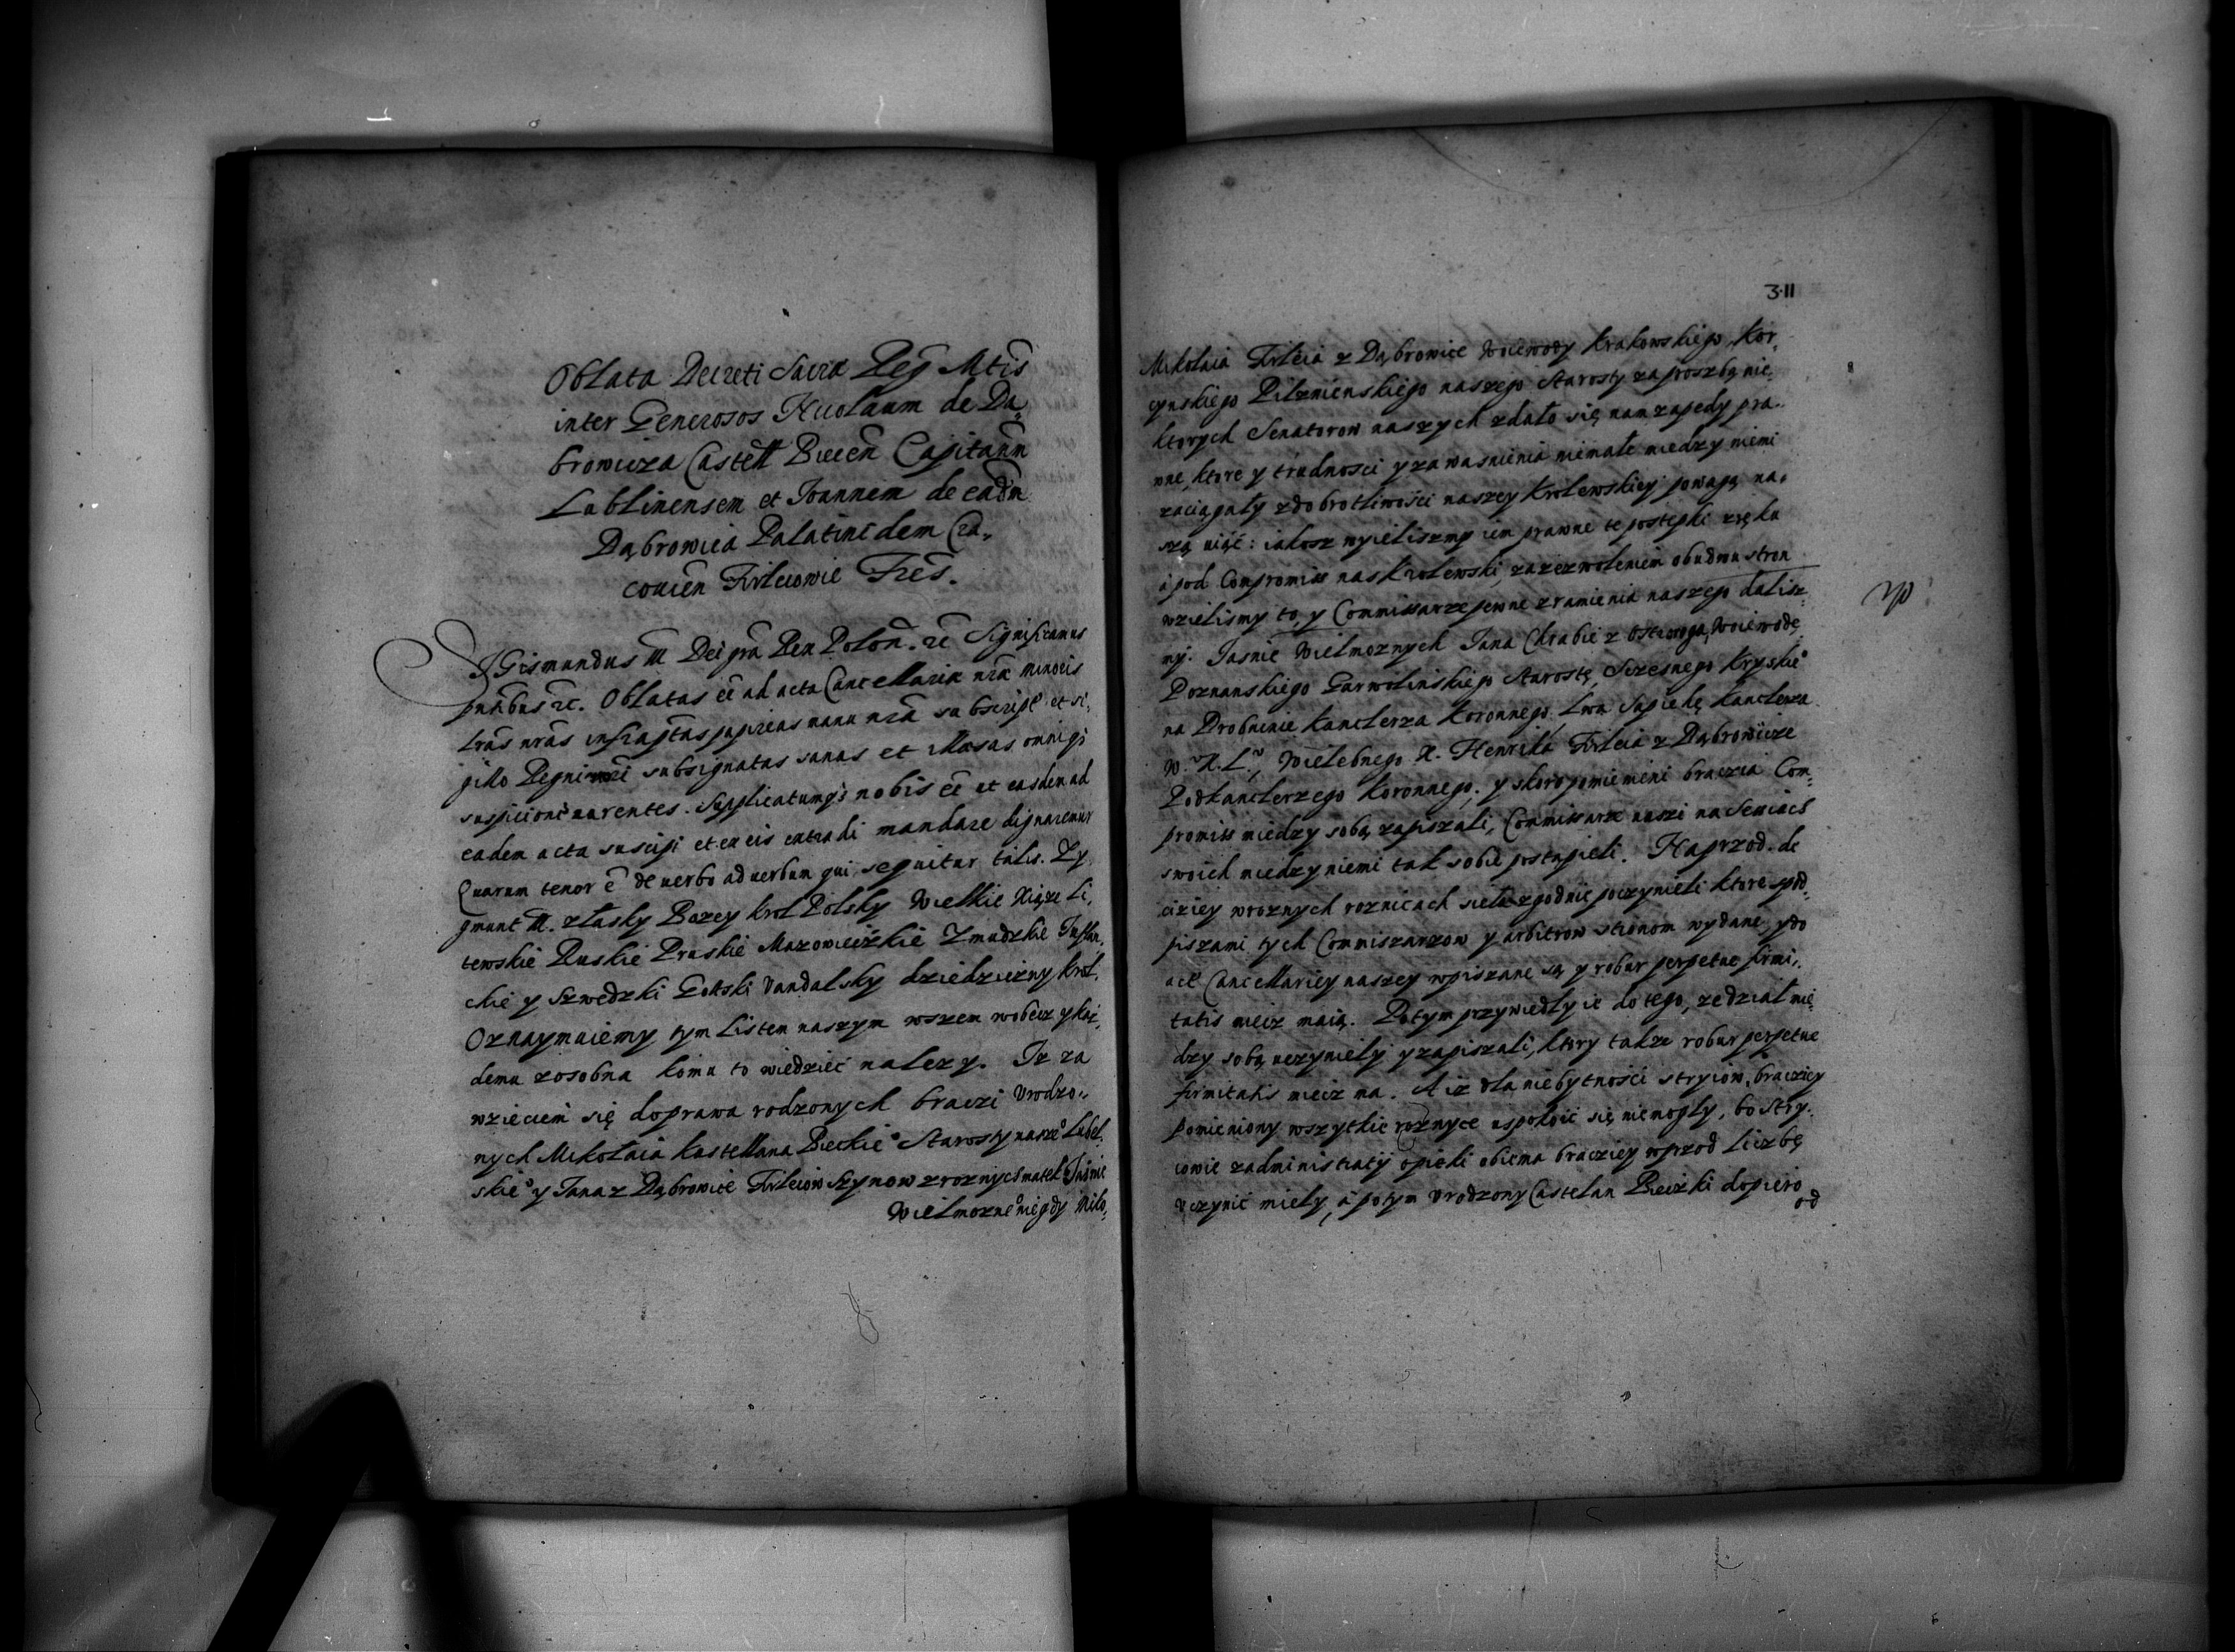 Oblata Decreti Sacrae Reg Mtis
inter Generosos Nicolaum de Da,
browicza Castell Biecen Capitann
Lublinensem et Joannem de eadm
Dąbrowica Palatini dem Cra,
covien Firleiowie Fres.
SIGismandus III Dei gra Rex Polon. rc Significamus
pntibus rc. Oblatas ee ad acta Cancellariae nrae minoris
lras nras infrascptas papireas manu nra subscript et si,
gillo Regni nri subsignatas sanas et illaesas omniq3
suspicione carentes. Supplicatumq3 nobis ee ut easdem ad
eadem acta suscipi et ex eis extradi mandare dignaremur
Quarum tenor e de verbo ad verbum qui sequitur talis. Zy,
gmunt III. z łasky Bozey krol Polsky Wielkie Xiąze Li,
tewskie Ruskie Pruskie Mazowieczkie Zmudzkie Inflan,
ckie y Szwedzki Gottski Vandalsky dziedziczny krol.
Oznaymuiemy tym Listem naszym wszem wobecz y kaz,
demu zosobna komu to wiedziec nalezy. Iz za
wzieciem się do prawa rodzonych braczi Vrodzo,,
nych Mikołaia kastellana Bieckie° Starosty nasze° Lubel
skie° y Jana z Dąbrowice Firleiow Synow z roznych matek Jasnie
Wielmozne° niegdy Miko,
3·11
Mikołaia Firleia z Dąbrowice Woiewody Krakowskiego, Kor,
cynskiego Pilznienskiego naszego Starosty za prozbą nie,
ktorych Senatorow naszych zdało się nam zapędy pra..
wne, ktore y trudnosci y zawasnienia niemałe miedzy niemi
zaciągały z dobrotliwości naszey Krolewskiey powagą na,
szą niąć: iakosz wyieliszmy iem prawne te postępki z ręku
a pod Compromiss nas Krolewski, za zezwoleniem obudwu stron
wzielismy to, y Commissarze pewne z ramienia naszego dalisz,
my. Jasnie Wielmoznych Jana Chrabie z Ostroroga, Woiewodę
Poznanskiego Garwolinskiego Starostę, Sczesnego Kryskie°
na Drobninie Kanclerza Koronnego, Lwa Sapiehę Kanclerza
W. X. L., Wielebnego X. Henrika Firleia z Dąbrowicze
Podkanclerzego Koronnego; y skoro pomienieni braczia Com,
promiss miedzy sobą zapiszali, Commissarze naszi na Sessiach
swoich miedzy niemi tak sobie postąpieli. Naprzod de
cizięy w roznych roznicach sieła zgodnie poczynieli ktore spod,
piszami tych Commiszarzow y arbitrow stronom wydane, y do
act Cancellariey naszey wpiszane są y robur perpetue firmi,
tatis miecz maią. Potym przywiedly ie do tego, ze dział mię,
dzy sobą uczynieły y zapiszali, ktory takze robur perpetue
firmitatis miecz ma. A iz dla niebytności stryiow, braczięy
Pomieniony wszytkie roznyce uspokoić się niemogły, bo Stry,
iowie z administratij opieki obiema braczięy wprzod Liczbę
Uczynić mieły, á potym Vrodzony Castelan Bieczki dopiero
od